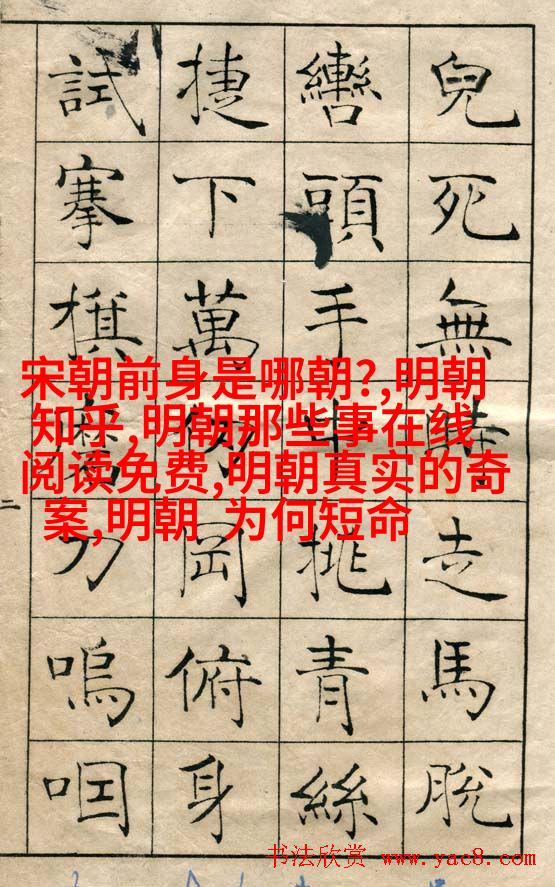 兒死無時走馬脫
轡頭手中挑青絲
捷下萬仞岡俯身
試搴旗磨刀嗚咽
二
宋朝前身是哪朝?,明朝
知乎,明朝那些事在线
阅读免费,明朝真实的奇
案,明朝 为何短命
书法欣赏 www.yac8.com